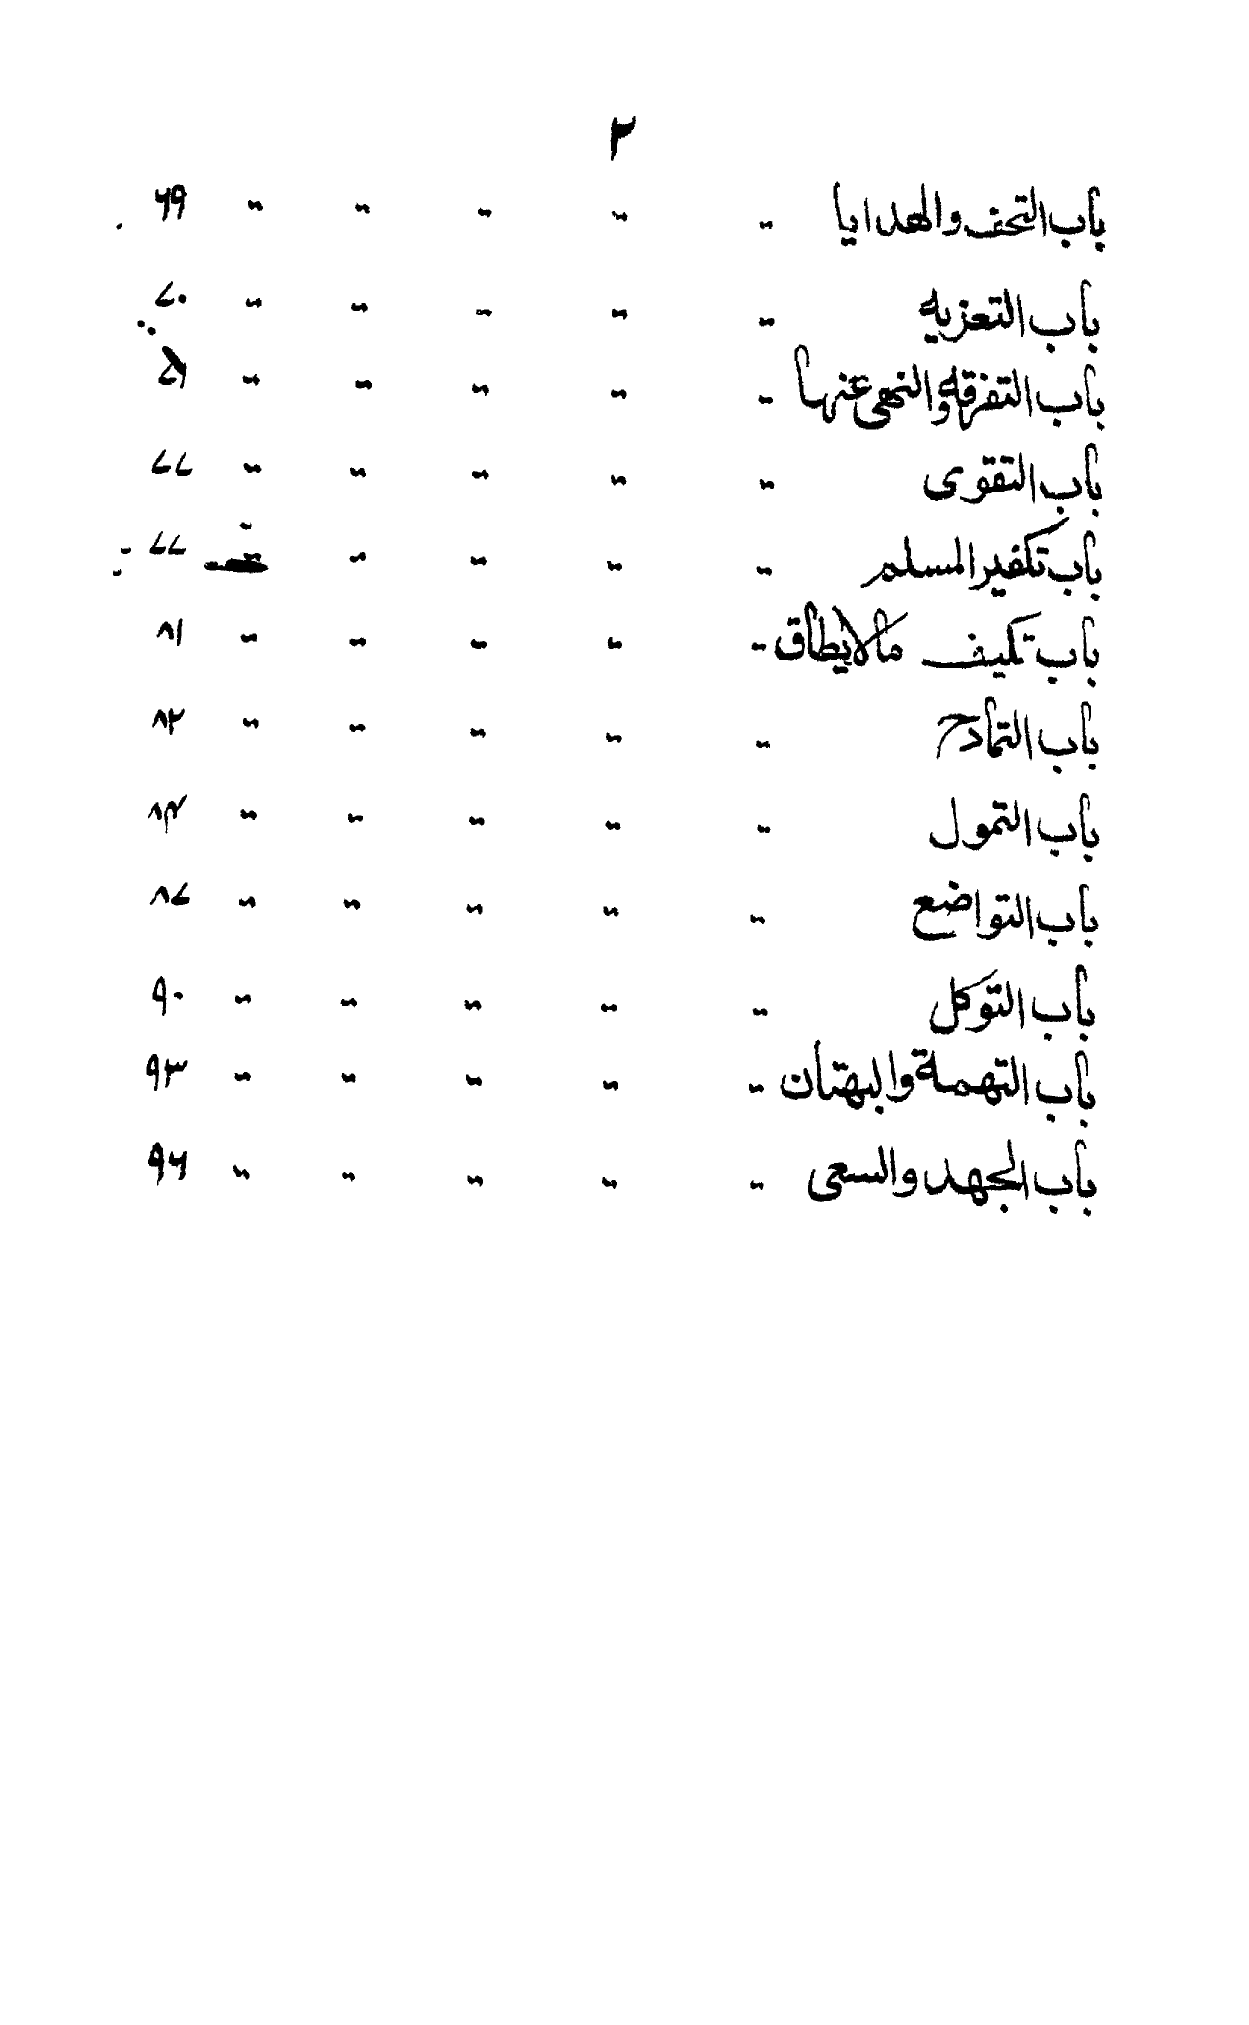 ٢
باب التحف والهدايا - - - - - ۶۹
باب التعزيه - - - - - ۷۰
باب التفرقه والنهى عنها - - - - -
باب التقوى - - - - - ۷۷
باب تكفير المسلم - - - - - ۷۷
باب تكليف مالايطاق - - - - - ۸۱
باب التمادح - - - - - ۸۲
باب التمول - - - - - ۸۴
باب التواضع - - - - - ۸۷
باب التوكل - - - - - ۹۰
باب التهمة والبهتان - - - - - ۹۳
باب الجهد والسعى - - - - - ۹۶